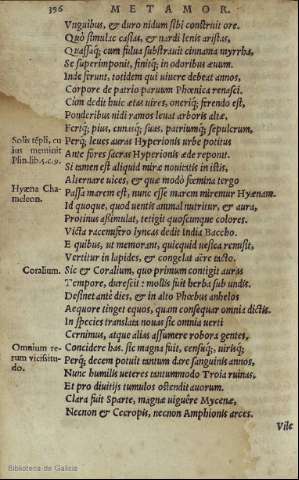 396 METAMOR.
Vnguibus, & duro nidum sibi construit ore.
Quò simulac casias, & nardi lenis aristas,
Quassaq; cum fulua substrauit cinnama myrrha,
Se superimponit, finitq; in odoribus æuum.
Inde ferunt, totidem qui viuere debeat annos,
Corpore de patrio paruum Phœnica renasci.
Cùm dedit huic ætas vires, oneriq; ferendo est,
Ponderibus nidi ramos leuat arboris altæ,
Fertq; pius, cunasq; suas, patriumq; sepulcrum,
Solis tēpli, cu
Perq; leues auras Hyperionis vrbe potitus
ius meminit
Ante fores sacras Hyperionis æde reponit.
Plin. lib. 5. c. 9.
Si tamen est aliquid miræ nouitatis in istis,
Alternare vices, & quæ modò fœmina tergo
Hyæna Cha-
Passa marem est, nunc esse marem miremur Hyænam.
meleon.
Id quoque, quod uentis animal nutritur, & aura,
Protinus assimulat, tetigit quoscumque colores.
Victa racemifero lyncas dedit India Baccho.
E quibus, ut memorant, quicquid uesica remisit,
Vertitur in lapides, & congelat aëre tacto.
Coralium.
Sic & Coralium, quo primum contigit auras
Tempore, durescit: mollis fuit herba sub undis.
Desinet antè dies, & in alto Phœbus anhelos
Aequore tinget equos, quam consequar omnia dictis.
In species translata nouas sic omnia verti
Cernimus, atque alias assumere robora gentes,
Omnium re-
Concidere has. sic magna fuit, censuq;, uirisq;
rum vicissitu-
Perq; decem potuit tantum dare sanguinis annos,
do.
Nunc humilis ueteres tantummodo Troia ruinas,
Et pro diuitijs tumulos ostendit auorum.
Clara fuit Sparte, magnæ uiguêre Mycenæ,
Necnon & Cecropis, necnon Amphionis arces.
Vile
Biblioteca de Galicia